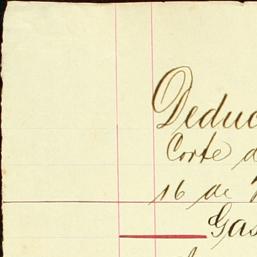 Deduc
Corte d
16 de
Gas